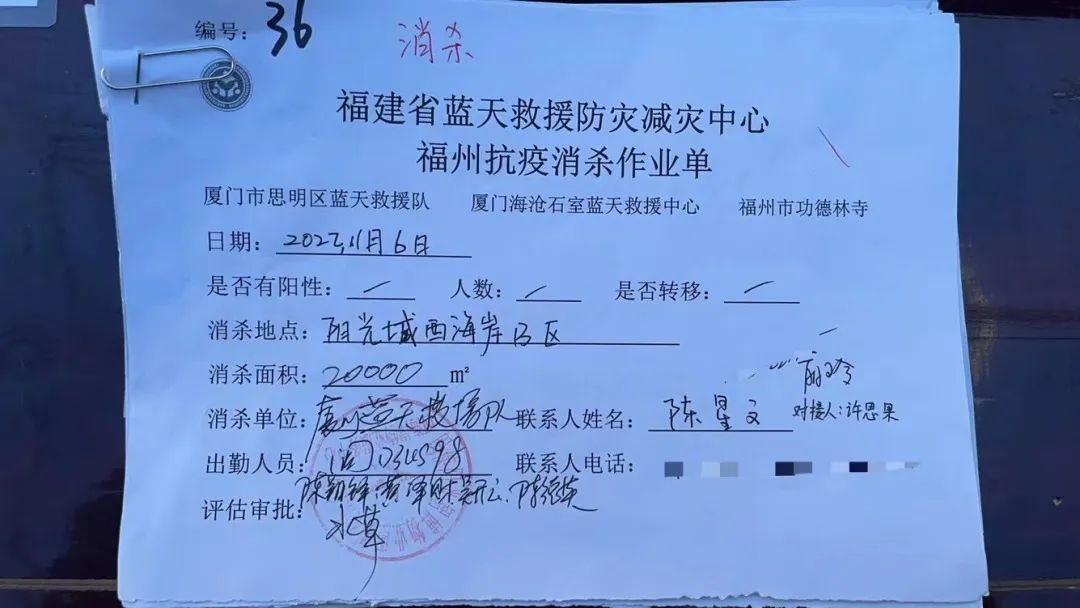 编号：36
消杀
福建省蓝天救援防灾减灾中心
福州抗疫消杀作业单
厦门市思明区蓝天救援队 厦门海沧石室蓝天救援中心 福州市功德林寺
日期：2022.11月6日
是否有阳性：/ 人数：/ 是否转移：/
消杀地点：阳光城西海岸B区
消杀面积：20000 m²
消杀单位：蓝天救援队 联系人姓名：陈星文 对接人：许思果
出勤人员： 联系人电话：
评估审批：